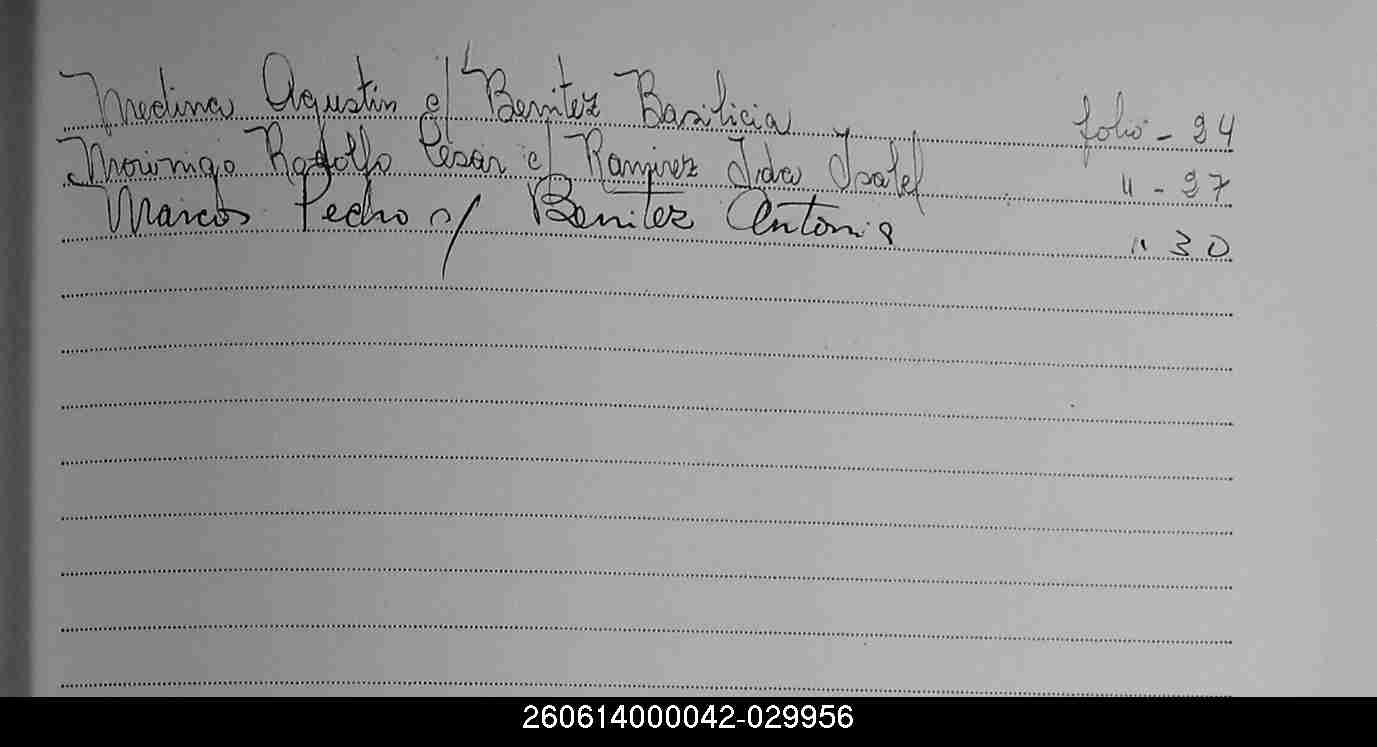 Medina Agustin c/ Benitez Basilicia folio - 24
Morinigo Rodolfo Cesar c/ Ramirez Ida Isabel " - 27
Marcos Pedro c/ Benitez Antonia " 30
260614000042-029956